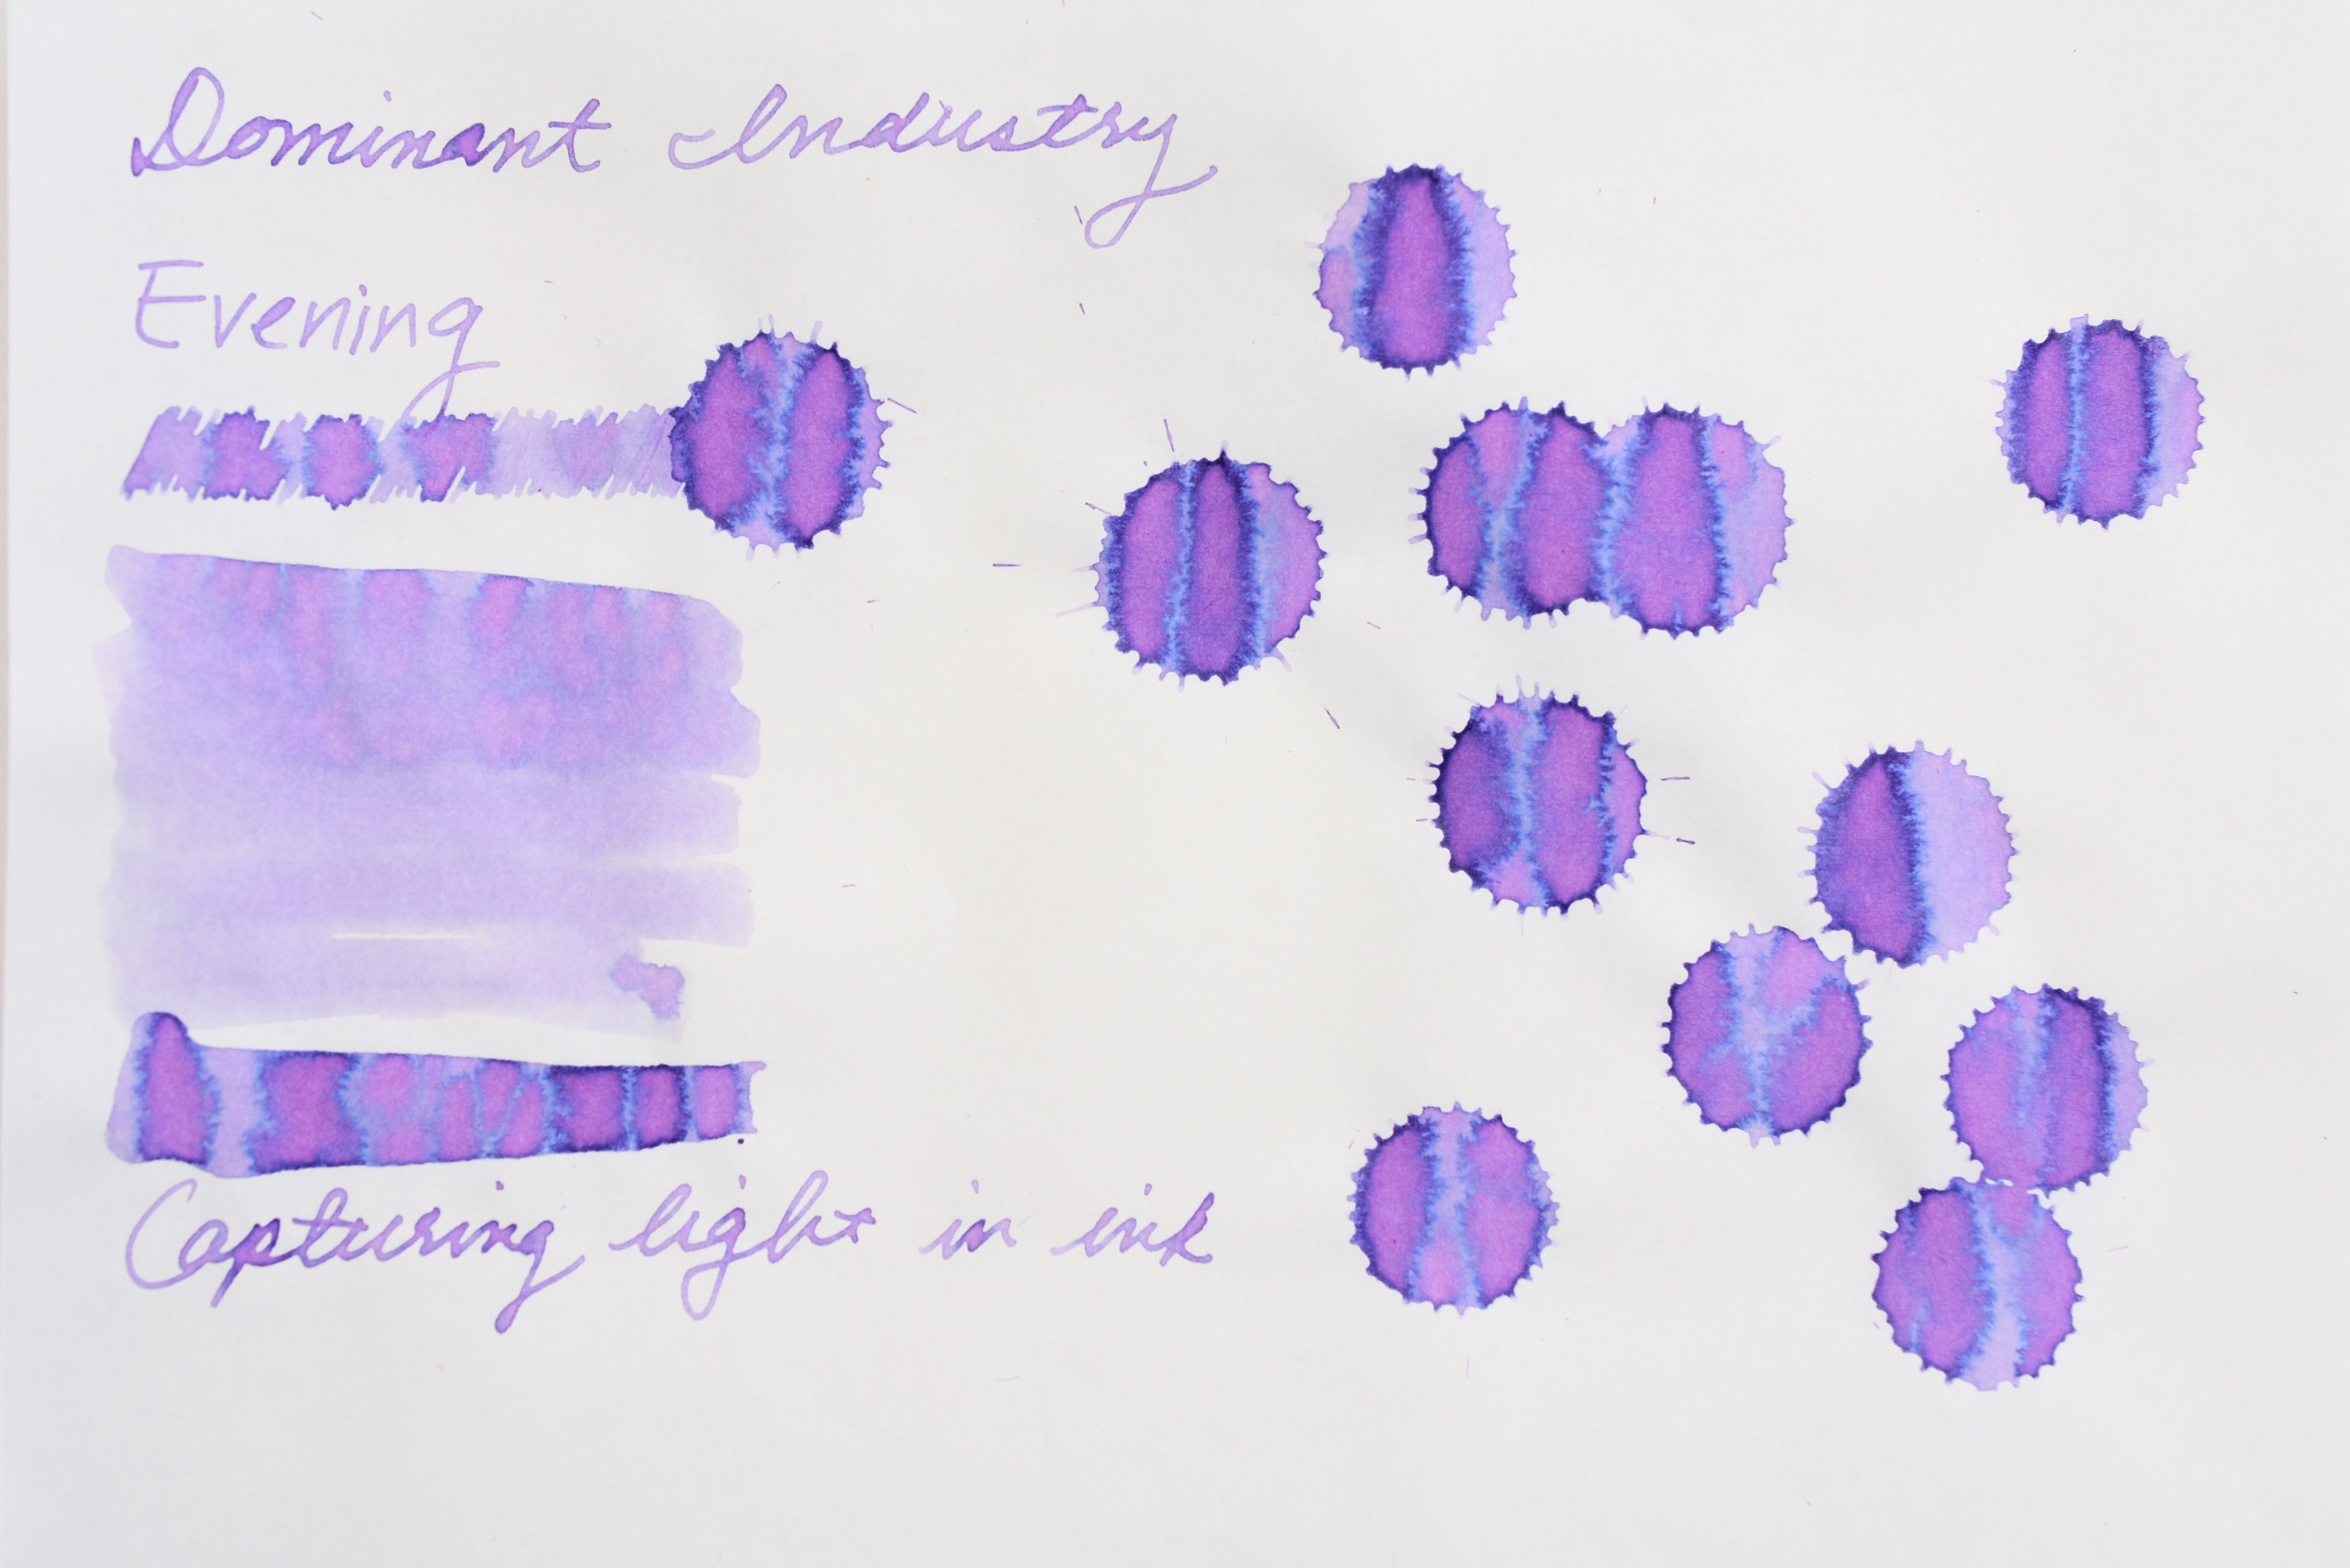 Dominant Industry
Evening
Capturing light in ink